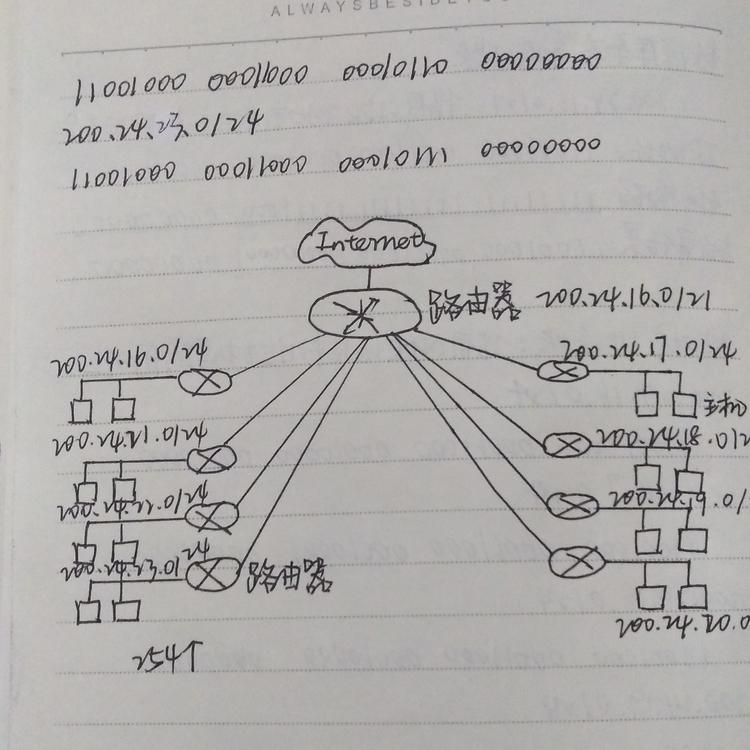 11001000 00011000 00010110 00000000
200.24.23.0/24
11001000 00011000 00010111 00000000
Internet
路由器 200.24.16.0/21
200.24.16.0/24
200.24.17.0/24
主机
200.24.18.0/2
200.24.19.0/
200.24.22.0/24
/24
路由器
200.24.20.0
254个